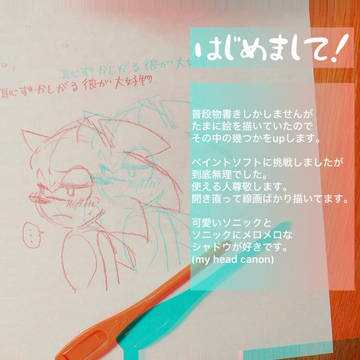 はじめまして!
恥ずかしがる彼が大好物
恥ずかしがる彼が大好物
普段物書きしかしませんが
たまに絵を描いていたので
その中の幾つかをupします。
ペイントソフトに挑戦しましたが
到底無理でした。
使える人尊敬します。
開き直って線画ばかり描いてます。
可愛いソニックと
ソニックにメロメロな
シャドウが好きです。
(my head canon)